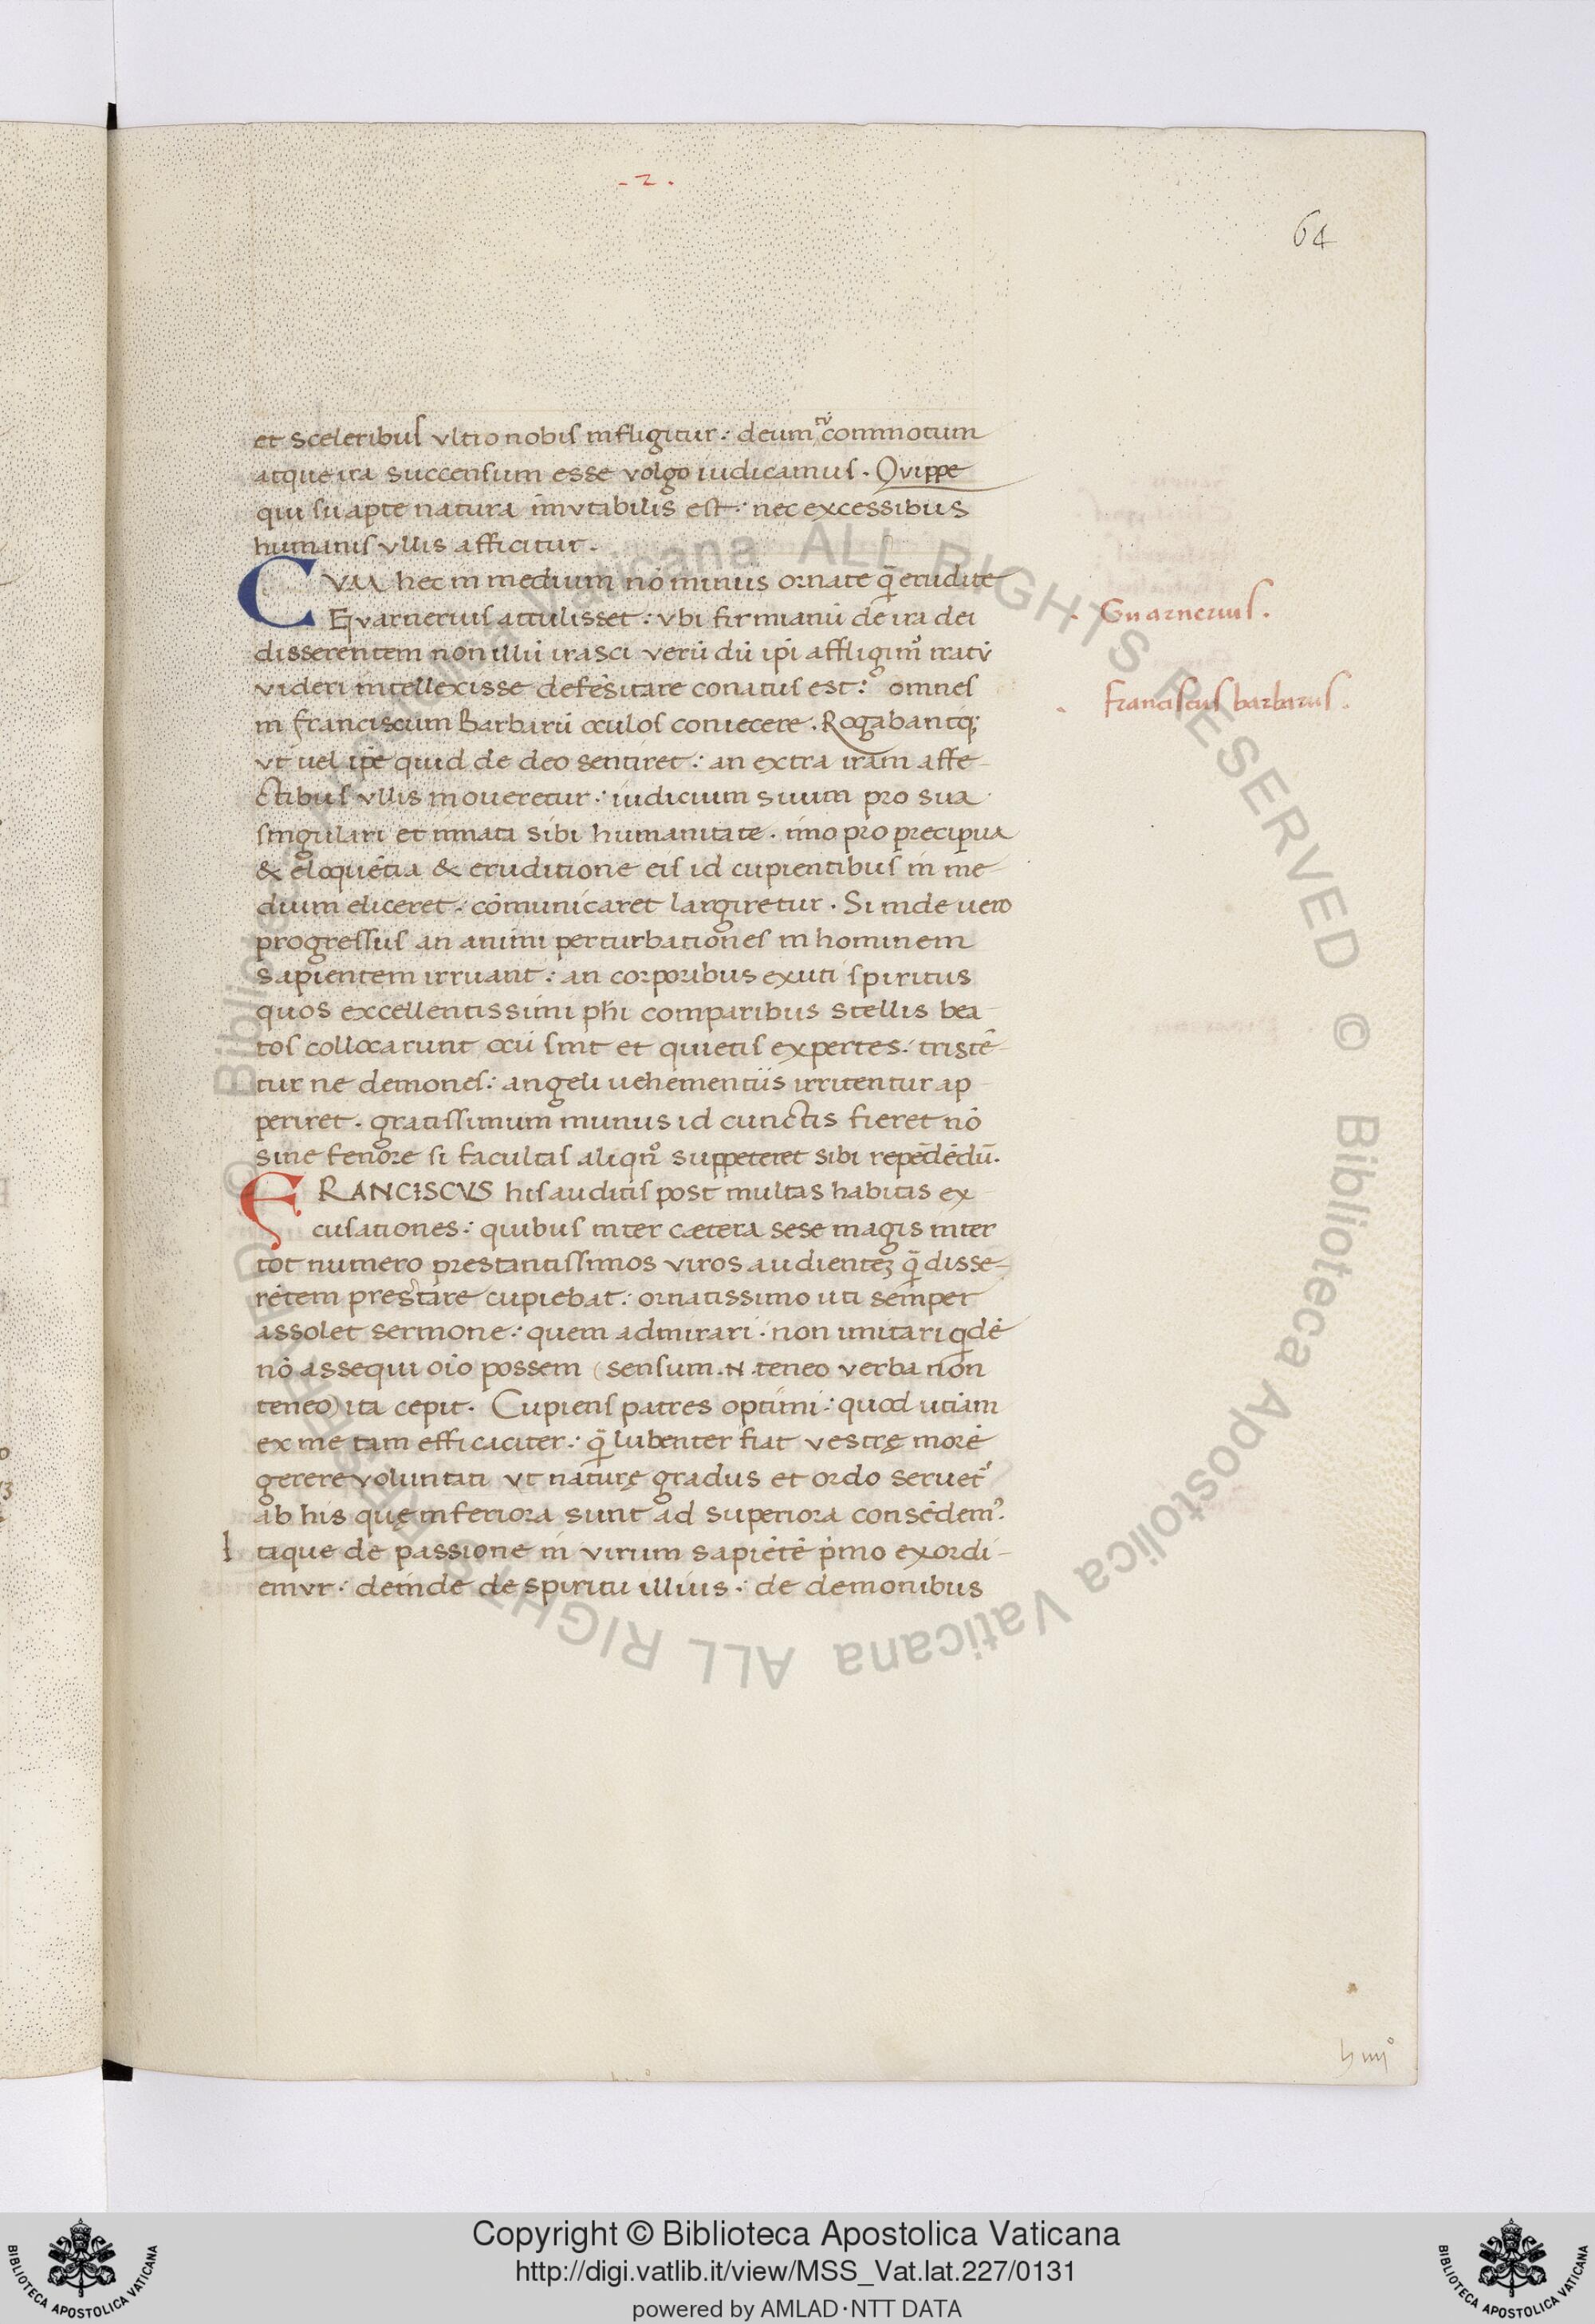 - 2 .
64
et sceleribus vltio nobis infligitur : deum tū commotum
atque ira succensum esse volgo iudicamus . Qvippe
qui suapte natura īmvtabilis est : nec excessibus
humanis vllis afficitur .
CVM hec in medium nō minus ornate q̄ erudite
Gvarnerius attulisset : vbi firmianū de ira dei
disserentem non illū irasci verū dū ipi affligim᷒ iratū
videri intellexisse defēsitare conatus est : omnes
in franciscum Barbarū oculos coniecere . Rogabantq;
vt uel ipe quid de deo sentiret : an extra iram affe-
ctibus vllis moueretur : iudicium suum pro sua
singulari et innata sibi humanitate . imo pro precipua
& eloquētia & eruditione eis id cupientibus in me-
dium eliceret : cōmunicaret largiretur . Si inde uero
progressus an animi perturbationes in hominem
sapientem irruant : an corporibus exuti spiritus
quos excellentissimi phi comparibus stellis bea-
tos collocarunt ocii sint et quietis expertes : tristē-
tur ne demones : angeli uehementius irritentur ap-
periret . gratissimum munus id cunctis fieret nō
sine fenore si facultas aliqn̄ suppeteret sibi repēdēdū .
FRANCISCVS his auditis post multas habitas ex-
cusationes : quibus inter cætera sese magis inter
tot numero prestantissimos viros audientez q̄ disse-
rētem prestare cupiebat : ornatissimo uti semper
assolet sermone : quem admirari : non imitari qdē
nō assequi oīo possem ( sensum .N. teneo verba non
teneo ) ita cepit . Cupiens patres optimi : quod utinam
ex me tam efficaciter : q̄ lubenter fiat vestrę morē
gerere voluntati vt naturę gradus et ordo seruet᷒
ab his quę inferiora sunt ad superiora consēdem᷒ .
Itaque de passione in virum sapiētē p̄mo exordi-
emvr : deinde de spiritu illius : de demonibus
. Guarnerius .
. franciscus barbarus .
h iiij°
© Biblioteca Apostolica Vaticana ALL RIGHTS RESERVED © Biblioteca Apostolica Vaticana ALL RIGHTS RESERVED
Copyright © Biblioteca Apostolica Vaticana
http://digi.vatlib.it/view/MSS_Vat.lat.227/0131
powered by AMLAD·NTT DATA
BIBLIOTECA APOSTOLICA VATICANA
BIBLIOTECA APOSTOLICA VATICANA